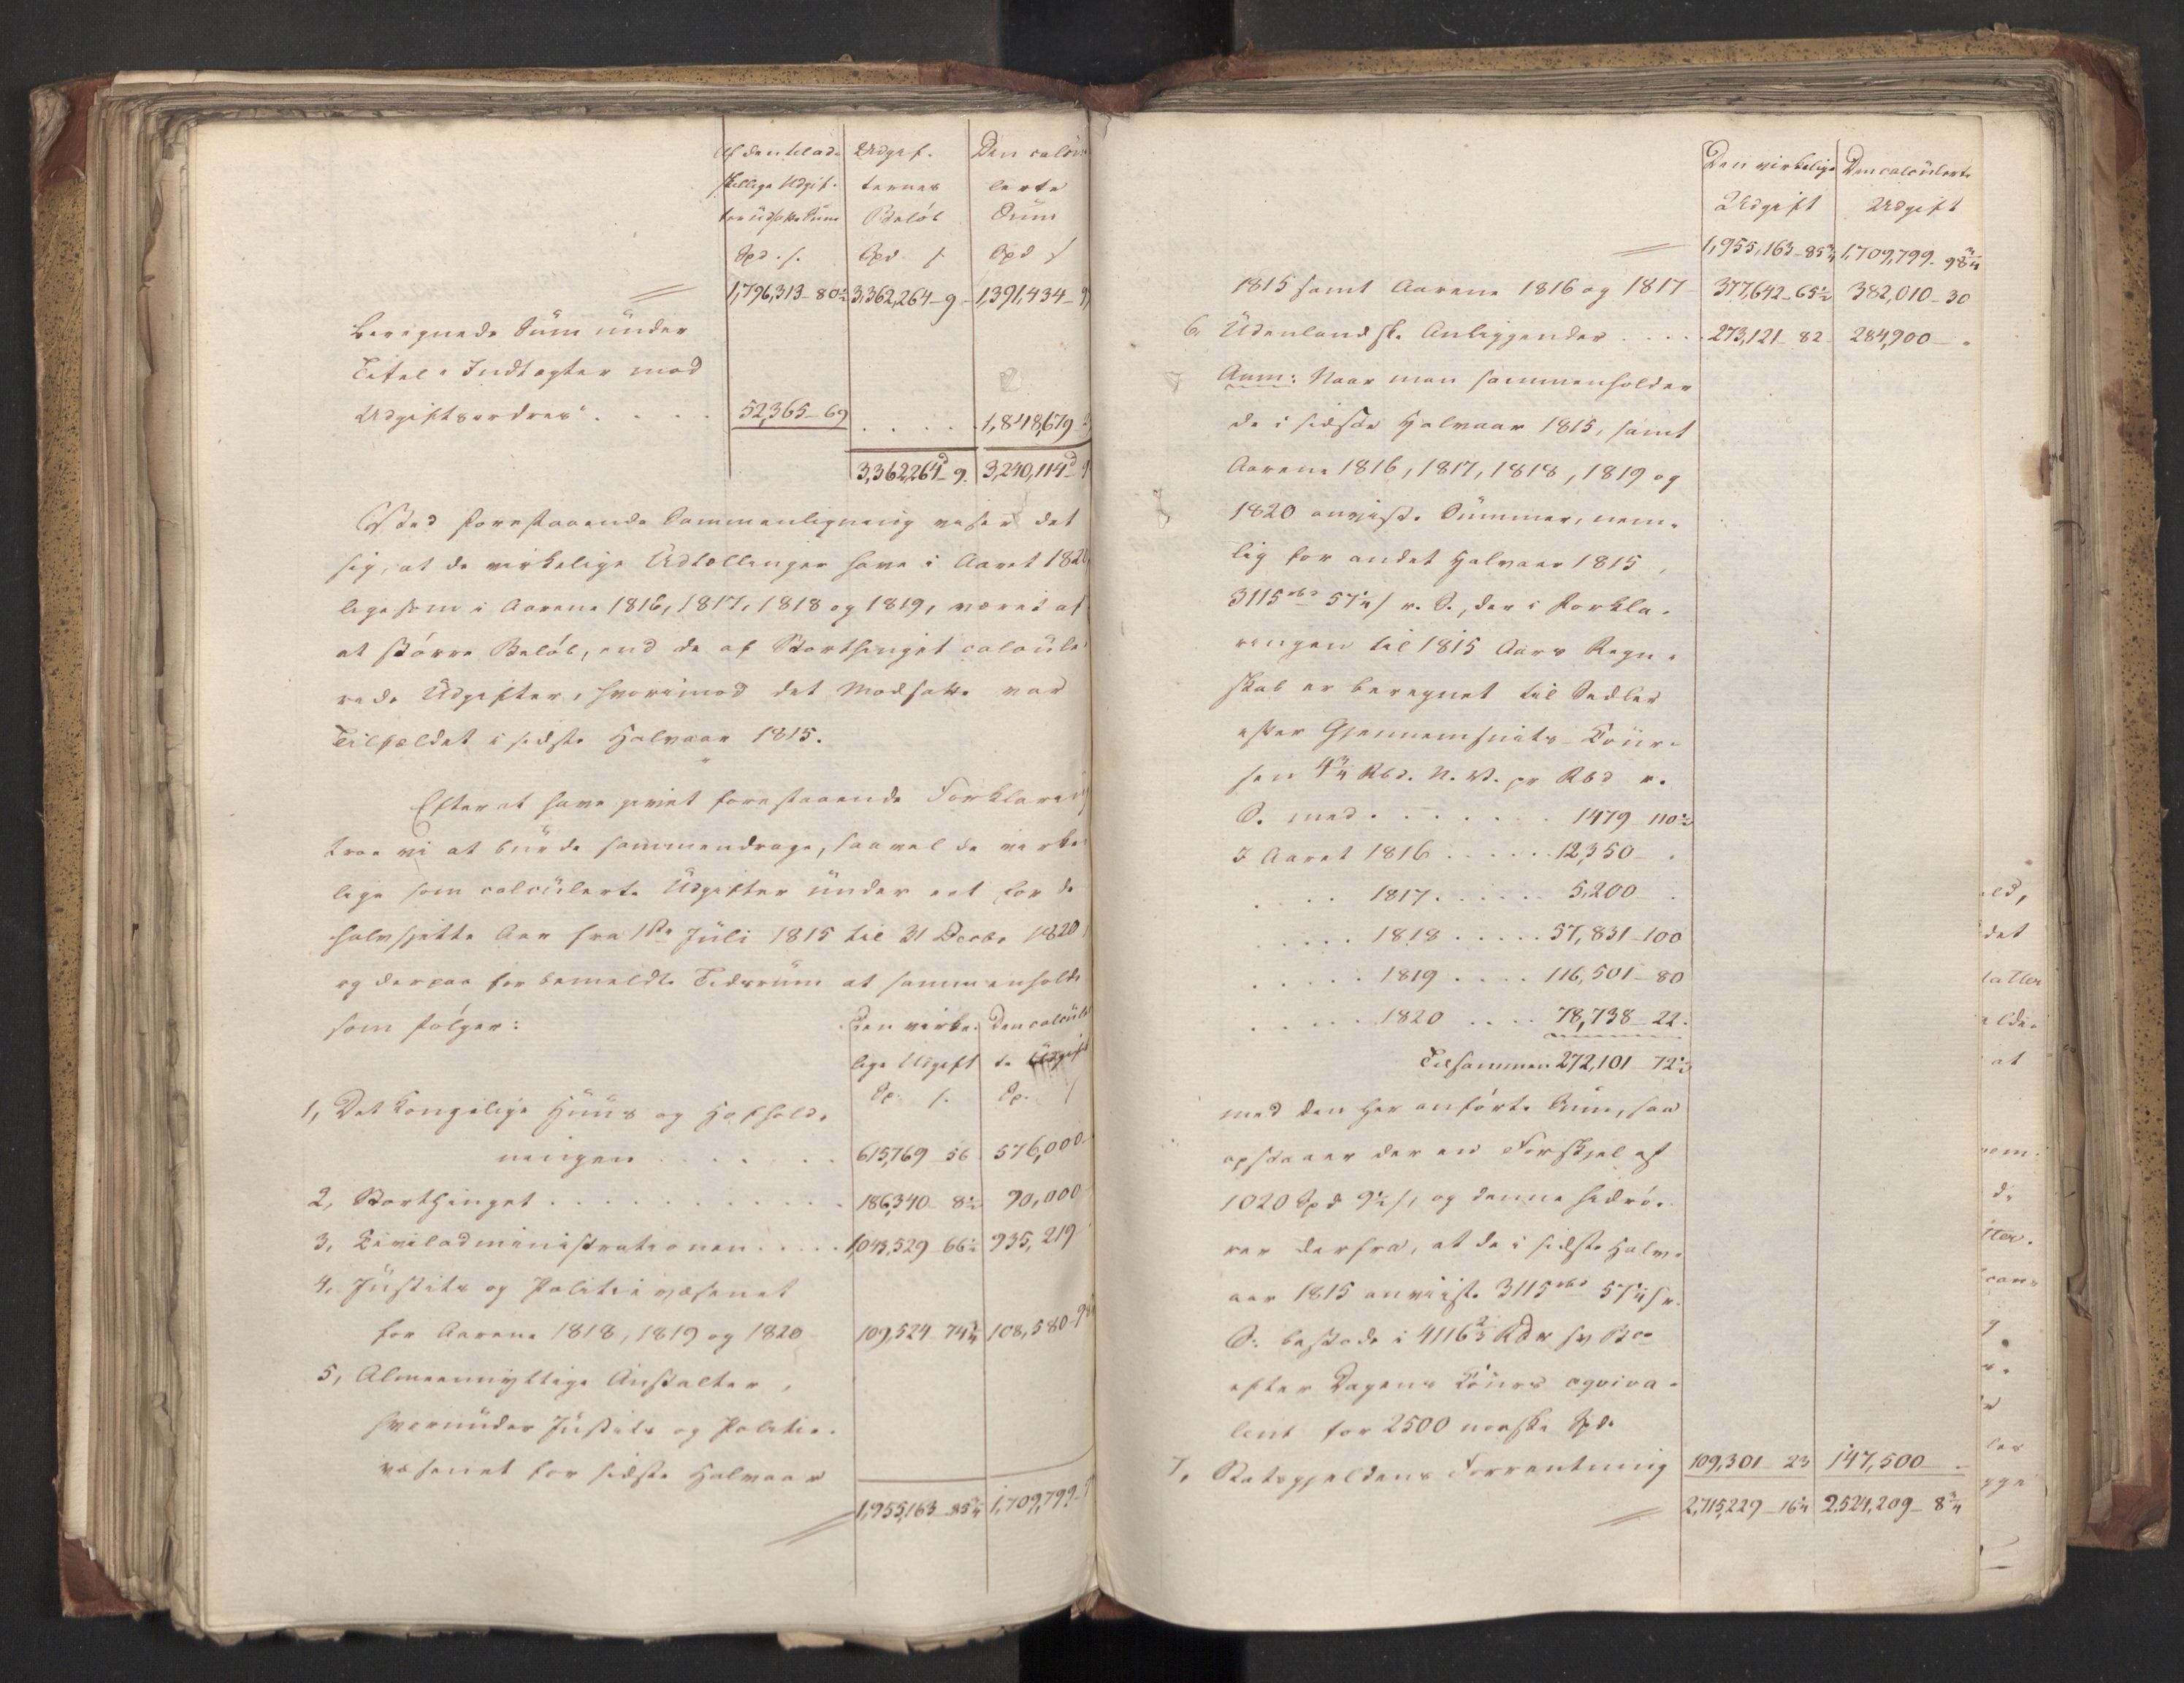 Af den tilad. Udgif- Den calcu-
skillige Udgif- ternes lerte
ter udsatte Sum Beløb Sum
Spd. s. Spd s Spd s
1,796,313-80½ 3,362,264-9- 1,391,434-9
beregnede Sum under
Titel "Indtægter mod
Udgiftsordres" . . . . 52,365-69 . . . . . 1,848,679
3,362,264-9. 3,240,114
Ved forestaaende Sammenligning viser det
sig, at de virkelige Udtællinger have i Aaret 1820
ligesom i Aarene 1816, 1817, 1818 og 1819, været af
et større Beløb, end de af Storthinget calcule-
rede Udgifter, hvorimod det Modsatte var
Tilfældet i sidste Halvaar 1815.
Efter at have givet forestaaende Forklaring
troe vi at burde sammendrage, saavel de virke-
lige som calculerte Udgifter under eet for de
halvsjette Aar fra 1ste Juli 1815 til 31 Decbr 1820
og derpaa for bemeldte Tidsrum at sammenholde
som følger: Den virke- Den calculer-
lige Udgift te Udgift
Sp. s. Sp. s
1, Det Kongelige Huus og Hofhold-
ningen . . . . . . 615,769-56 576,000-
2, Storthinget . . . . . . . . . . 186,340-8½ 90,000
3, Civiladministrationen . . . . . 1,043,529-66½ 935,219
4, Justits og Politievæsenet
for Aarene 1818, 1819 og 1820 109,524-74¾ 108,580-98
5, Almeennyttige Anstalter,
hvorunder Justits og Politie-
væsenet for sidste Halvaar
1,955,163-85¾ 1,709,799-9
Den virkelige Den calculerte
Udgift Udgift
1,955,163-85¾ 1,709,799-98¾
1815 samt Aarene 1816 og 1817 377,642-65½ 382,010-30
6. Udenlandske Anliggender . . . . 273,121-82- 284,900- .
Anm: Naar man sammenholder
de i sidste Halvaar 1815, samt
Aarene 1816, 1817, 1818, 1819 og
1820 anviste Summer, nem-
lig for andet Halvaar 1815,
3115 rbd 57¼ s r. S., der i Forkla-
ringen til 1815 Aars Regn-
skab er beregnet til Sedler
efter Gjennemsnits-Cour-
sen 4¾ Rbd. N. V. pr Rbd r.
S. med . . . . . . . 1479-110½
I Aaret 1816 . . . . . . 12,350- .
. . . . 1817 . . . . . . 5,200- .
. . . . . 1818 . . . . . 57,831-100
. . . . . 1819 . . . . 116,501-80
. . . . . 1820 . . . . 78,738-22.
Tilsammen 272,101-72½
med den her anførte Sum, saa
opstaaer der en Forskjel af
1020 Spd 9½ s, og denne hidrø-
rer derfra, at de i sidste Halv-
aar 1815 anviiste 3115 rbd 57¼ s r.
S. bestode i 4116⅔ Rdr sv Bco
efter Dagens Cours eqviva-
lent for 2500 norske Spd.
7, Statsgjeldens Forrentning 109,301-23 147,500- .
2,715,229-16¼ 2,524,209-8¾
ed,
det
aller
at
em-
de